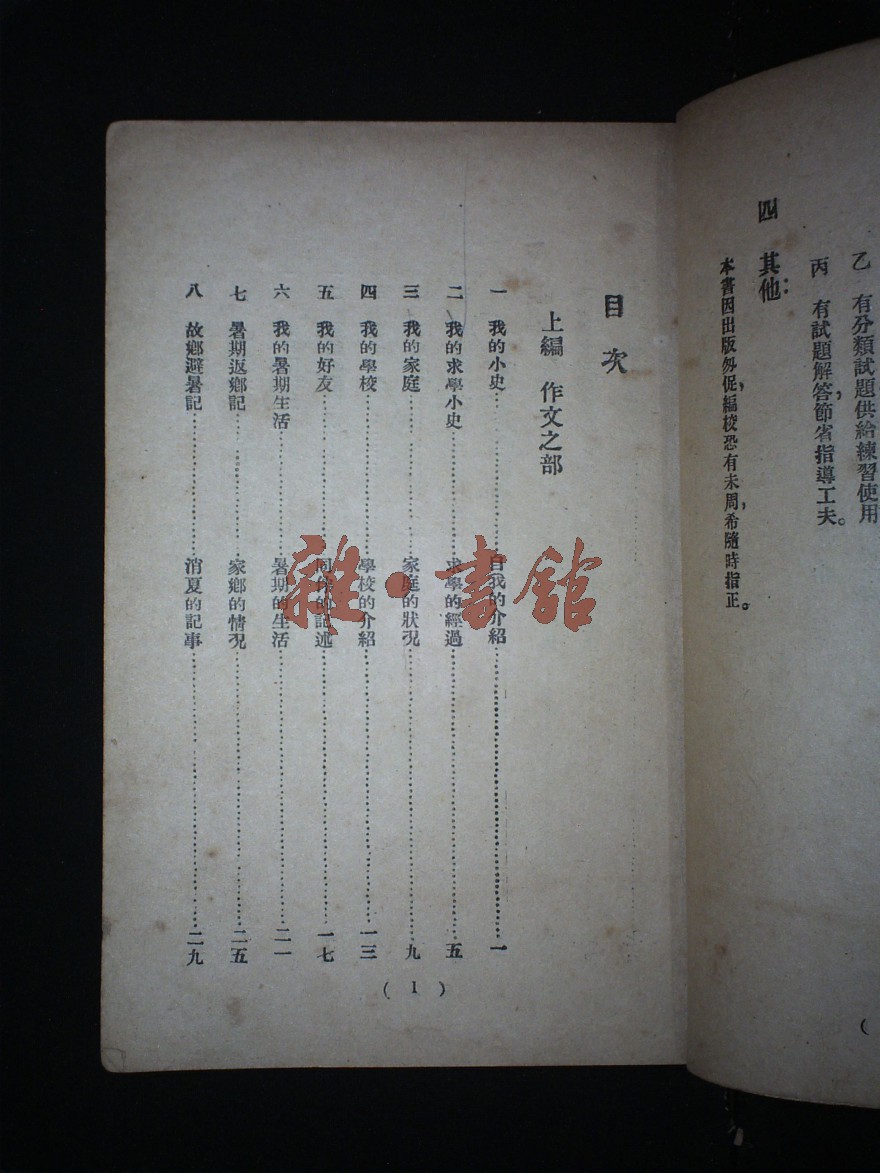 乙　有分類試題供給練習使用
丙　有試題解答，節省指導工夫。
四　其他：
本書因出版匆促，編校恐有未周，希隨時指正。
目次
上編　作文之部
一　我的小史……自我的介紹……一
二　我的求學小史……求學的經過……五
三　我的家庭……家庭的狀況……九
四　我的學校……學校的介紹……一三
五　我的好友……同伴的記述……一七
六　我的暑期生活……暑期的生活……二一
七　暑期返鄉記……家鄉的情況……二五
八　故鄉避暑記……消夏的記事……二九
(1)
雜·書館